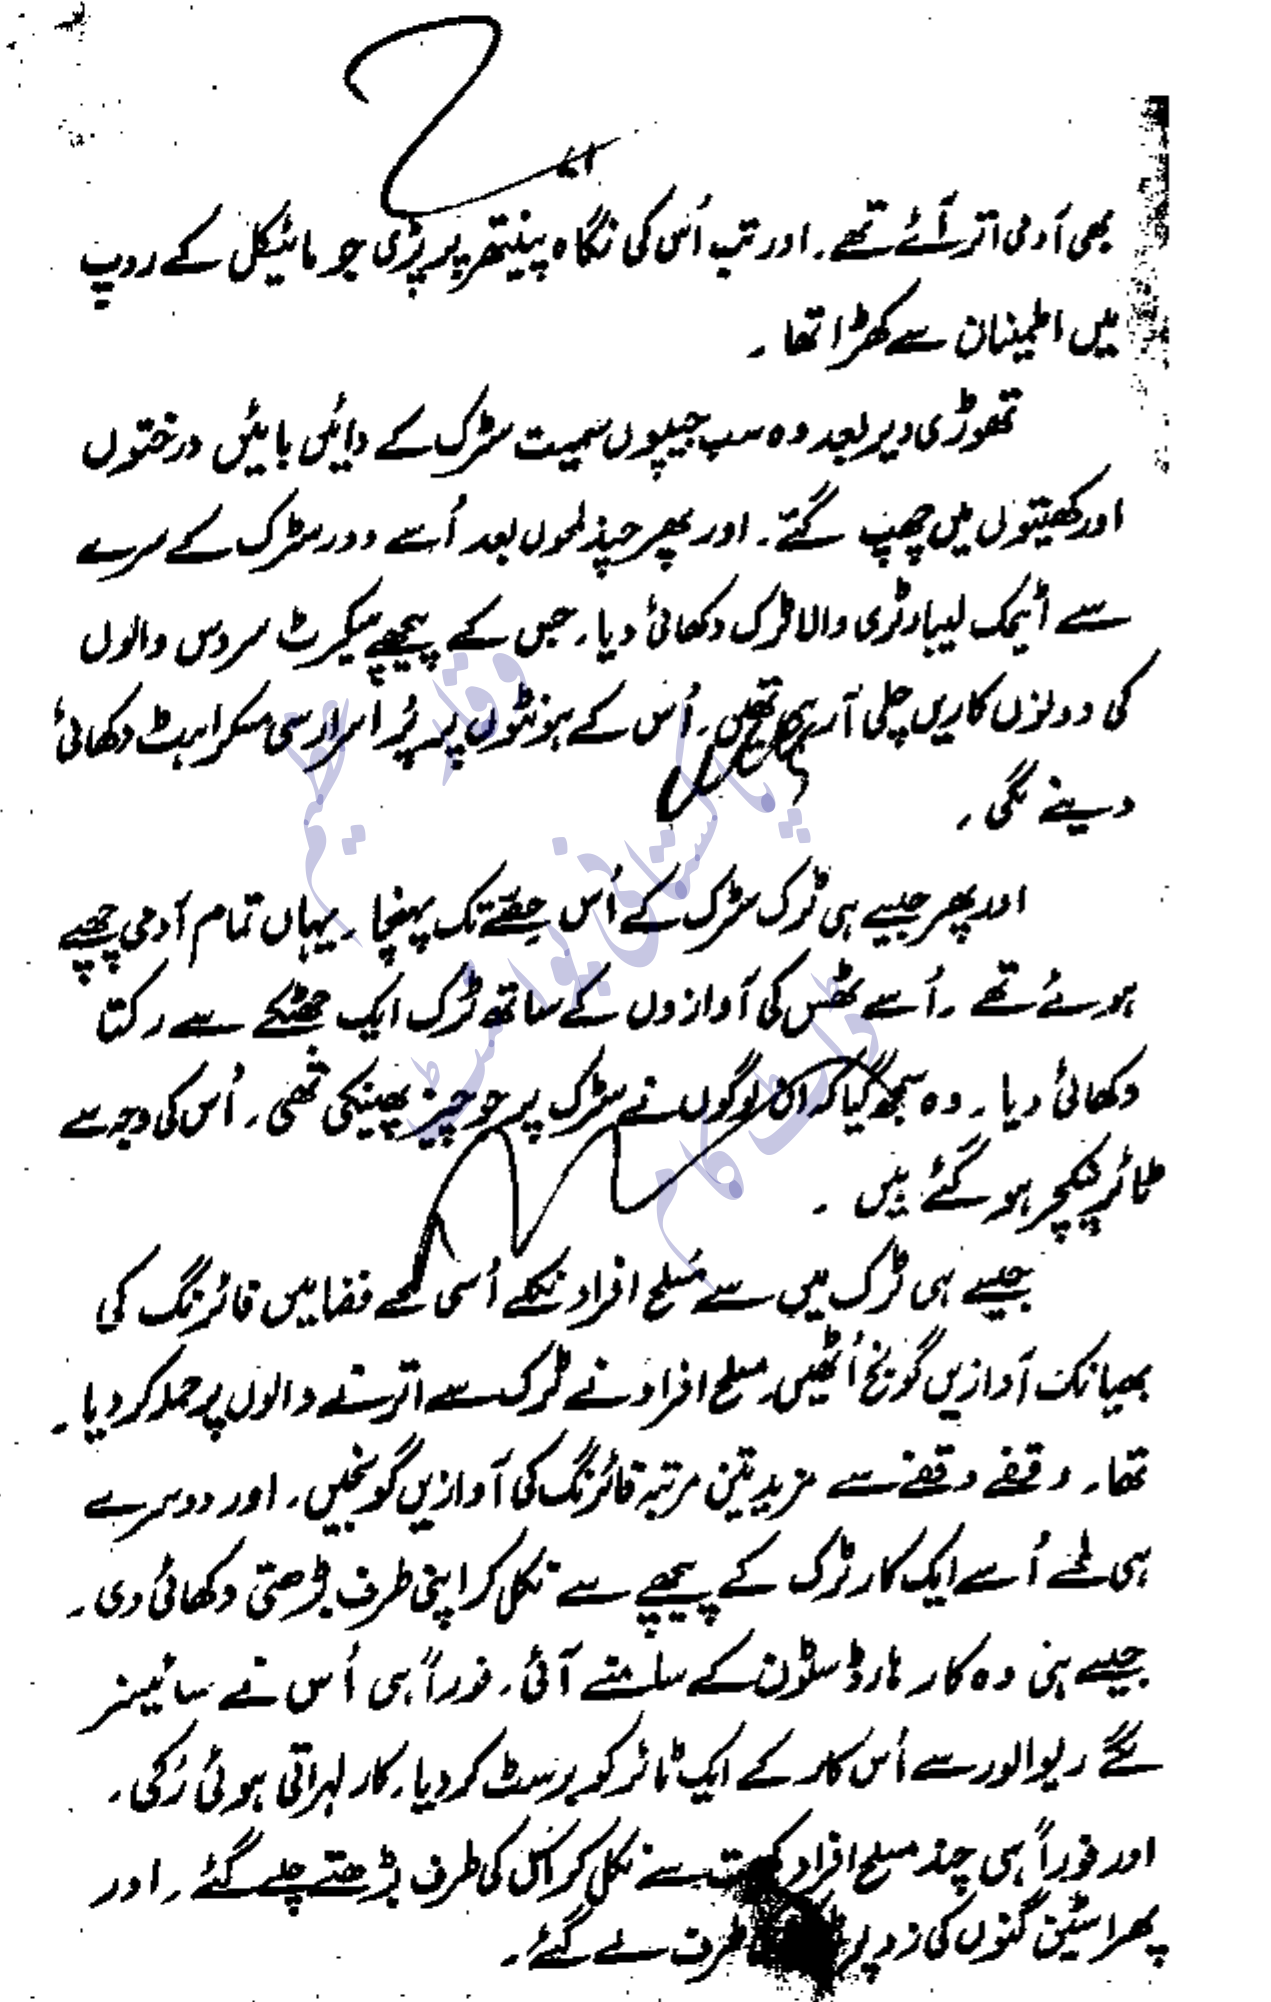 بھی آدمی اتر آئے تھے۔ اور تب اُس کی نگاہ پینتھر پر پڑی جو مائیکل کے روپ
میں اطمینان سے کھڑا تھا۔
تھوڑی دیر بعد وہ سب جیپوں سمیت سڑک کے دائیں بائیں درختوں
اور کھیتوں میں چھپ گئے۔ اور پھر چند لمحوں بعد اُسے دور سڑک کے سرے
سے اٹیمک لیبارٹری والا ٹرک دکھائی دیا۔ جس کے پیچھے سیکرٹ سروس والوں
کی دونوں کاریں چلی آ رہی تھیں۔ اُس کے ہونٹوں پر پُر اسرار سی مسکراہٹ دکھائی
دینے لگی۔
اور پھر جیسے ہی ٹرک سڑک کے اُس حصّے تک پہنچا۔ یہاں تمام آدمی چھپے
ہوئے تھے۔ اُسے ٹھس کی آوازوں کے ساتھ ٹرک ایک جھٹکے سے رکتا
دکھائی دیا۔ وہ سمجھ گیا کہ ان لوگوں نے سڑک پر جو چیز پھینکی تھی۔ اُس کی وجہ سے
ٹائر پنکچر ہو گئے ہیں۔
جیسے ہی ٹرک میں سے مُسلح افراد نکلے اُسی لمحے فضا میں فائرنگ کی
بھیانک آوازیں گونج اُٹھیں۔ مسلح افراد نے ٹرک سے اترنے والوں پر حملہ کر دیا۔
تھا۔ وقفے وقفے سے مزید تین مرتبہ فائرنگ کی آوازیں گونجیں۔ اور دوسرے
ہی لمحے اُسے ایک کار ٹرک کے پیچھے سے نکل کر اپنی طرف بڑھتی دکھائی دی۔
جیسے ہی وہ کار ہارڈ سٹون کے سامنے آئی۔ فوراً ہی اُس نے سائیلنسر
لگے ریوالور سے اُس کار کے ایک ٹائر کو برسٹ کر دیا۔ کار لہراتی ہوئی رُکی۔
اور فوراً ہی چند مسلح افراد سے نکل کر اس کی طرف بڑھتے چلے گئے۔ اور
پھر اسٹین گنوں کی زد پر طرف لے گئے۔
پاکستانی پوائنٹ
ڈاٹ کام
وقار عظیم